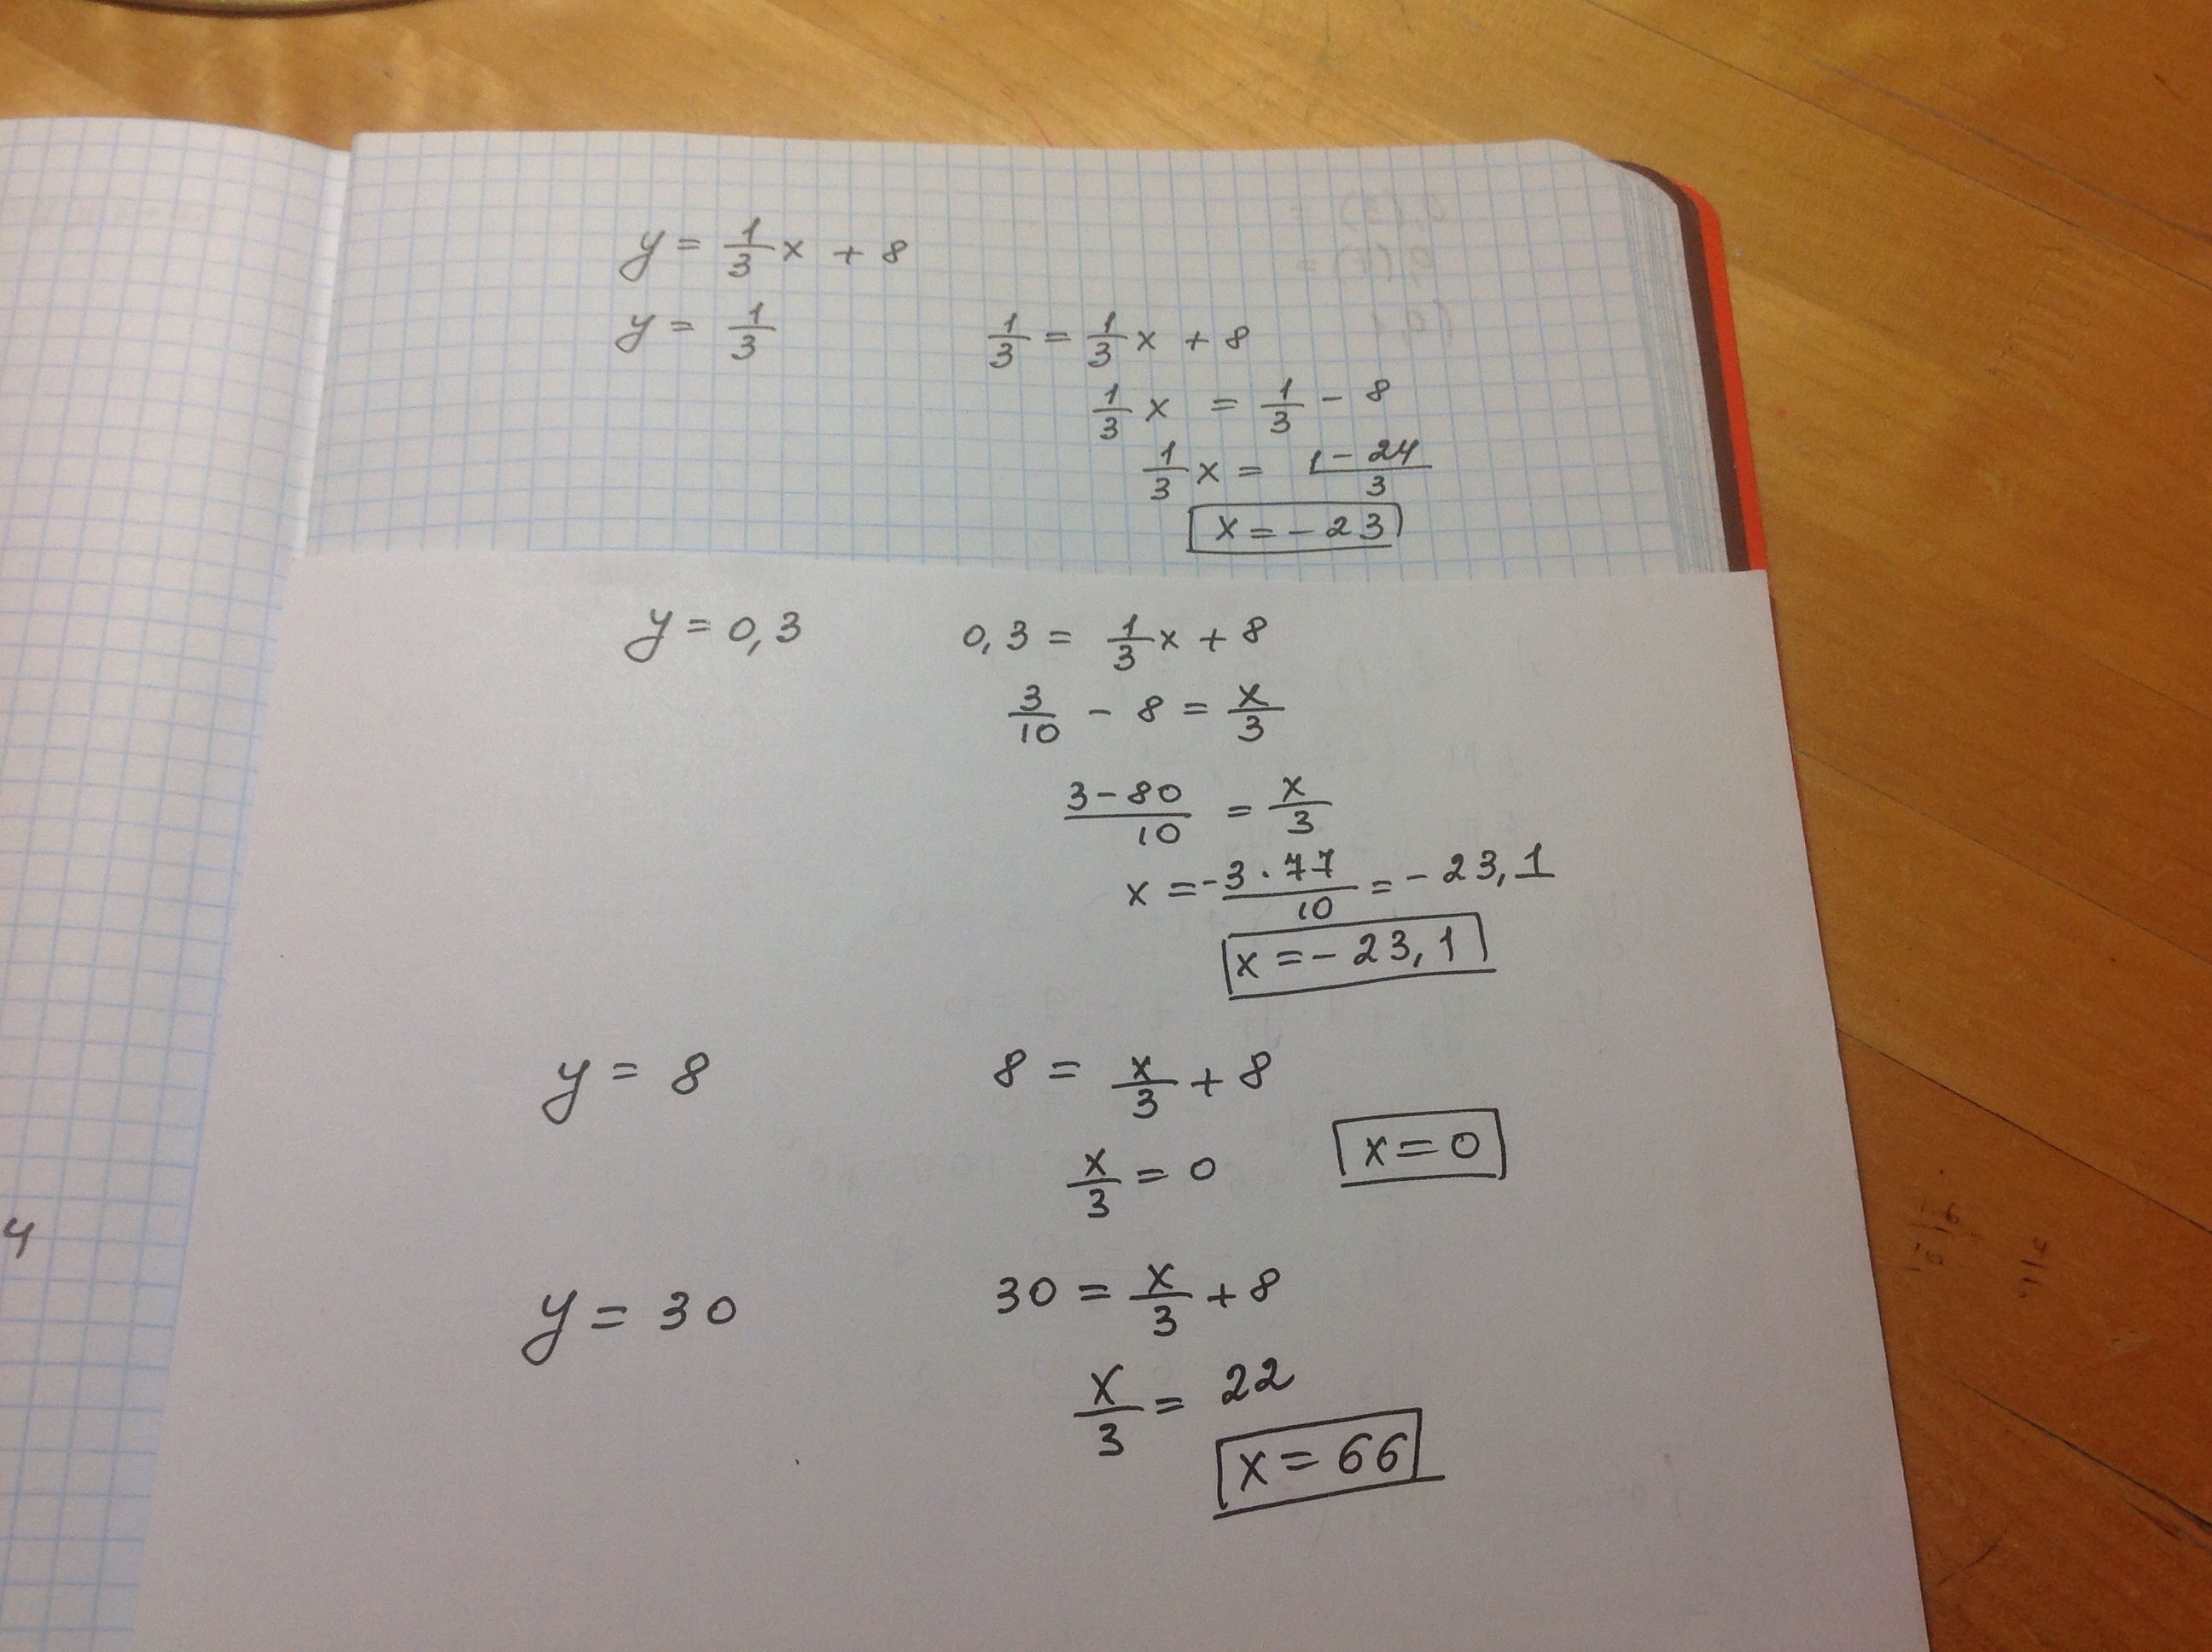 y = 1/3 x + 8
y = 1/3    1/3 = 1/3 x + 8
1/3 x = 1/3 - 8
1/3 x = (1 - 24)/3
x = - 23
y = 0,3    0,3 = 1/3 x + 8
3/10 - 8 = x/3
(3 - 80)/10 = x/3
x = - (3 · 77)/10 = - 23,1
x = - 23,1
y = 8    8 = x/3 + 8
x/3 = 0    x = 0
4
y = 30    30 = x/3 + 8
x/3 = 22
x = 66